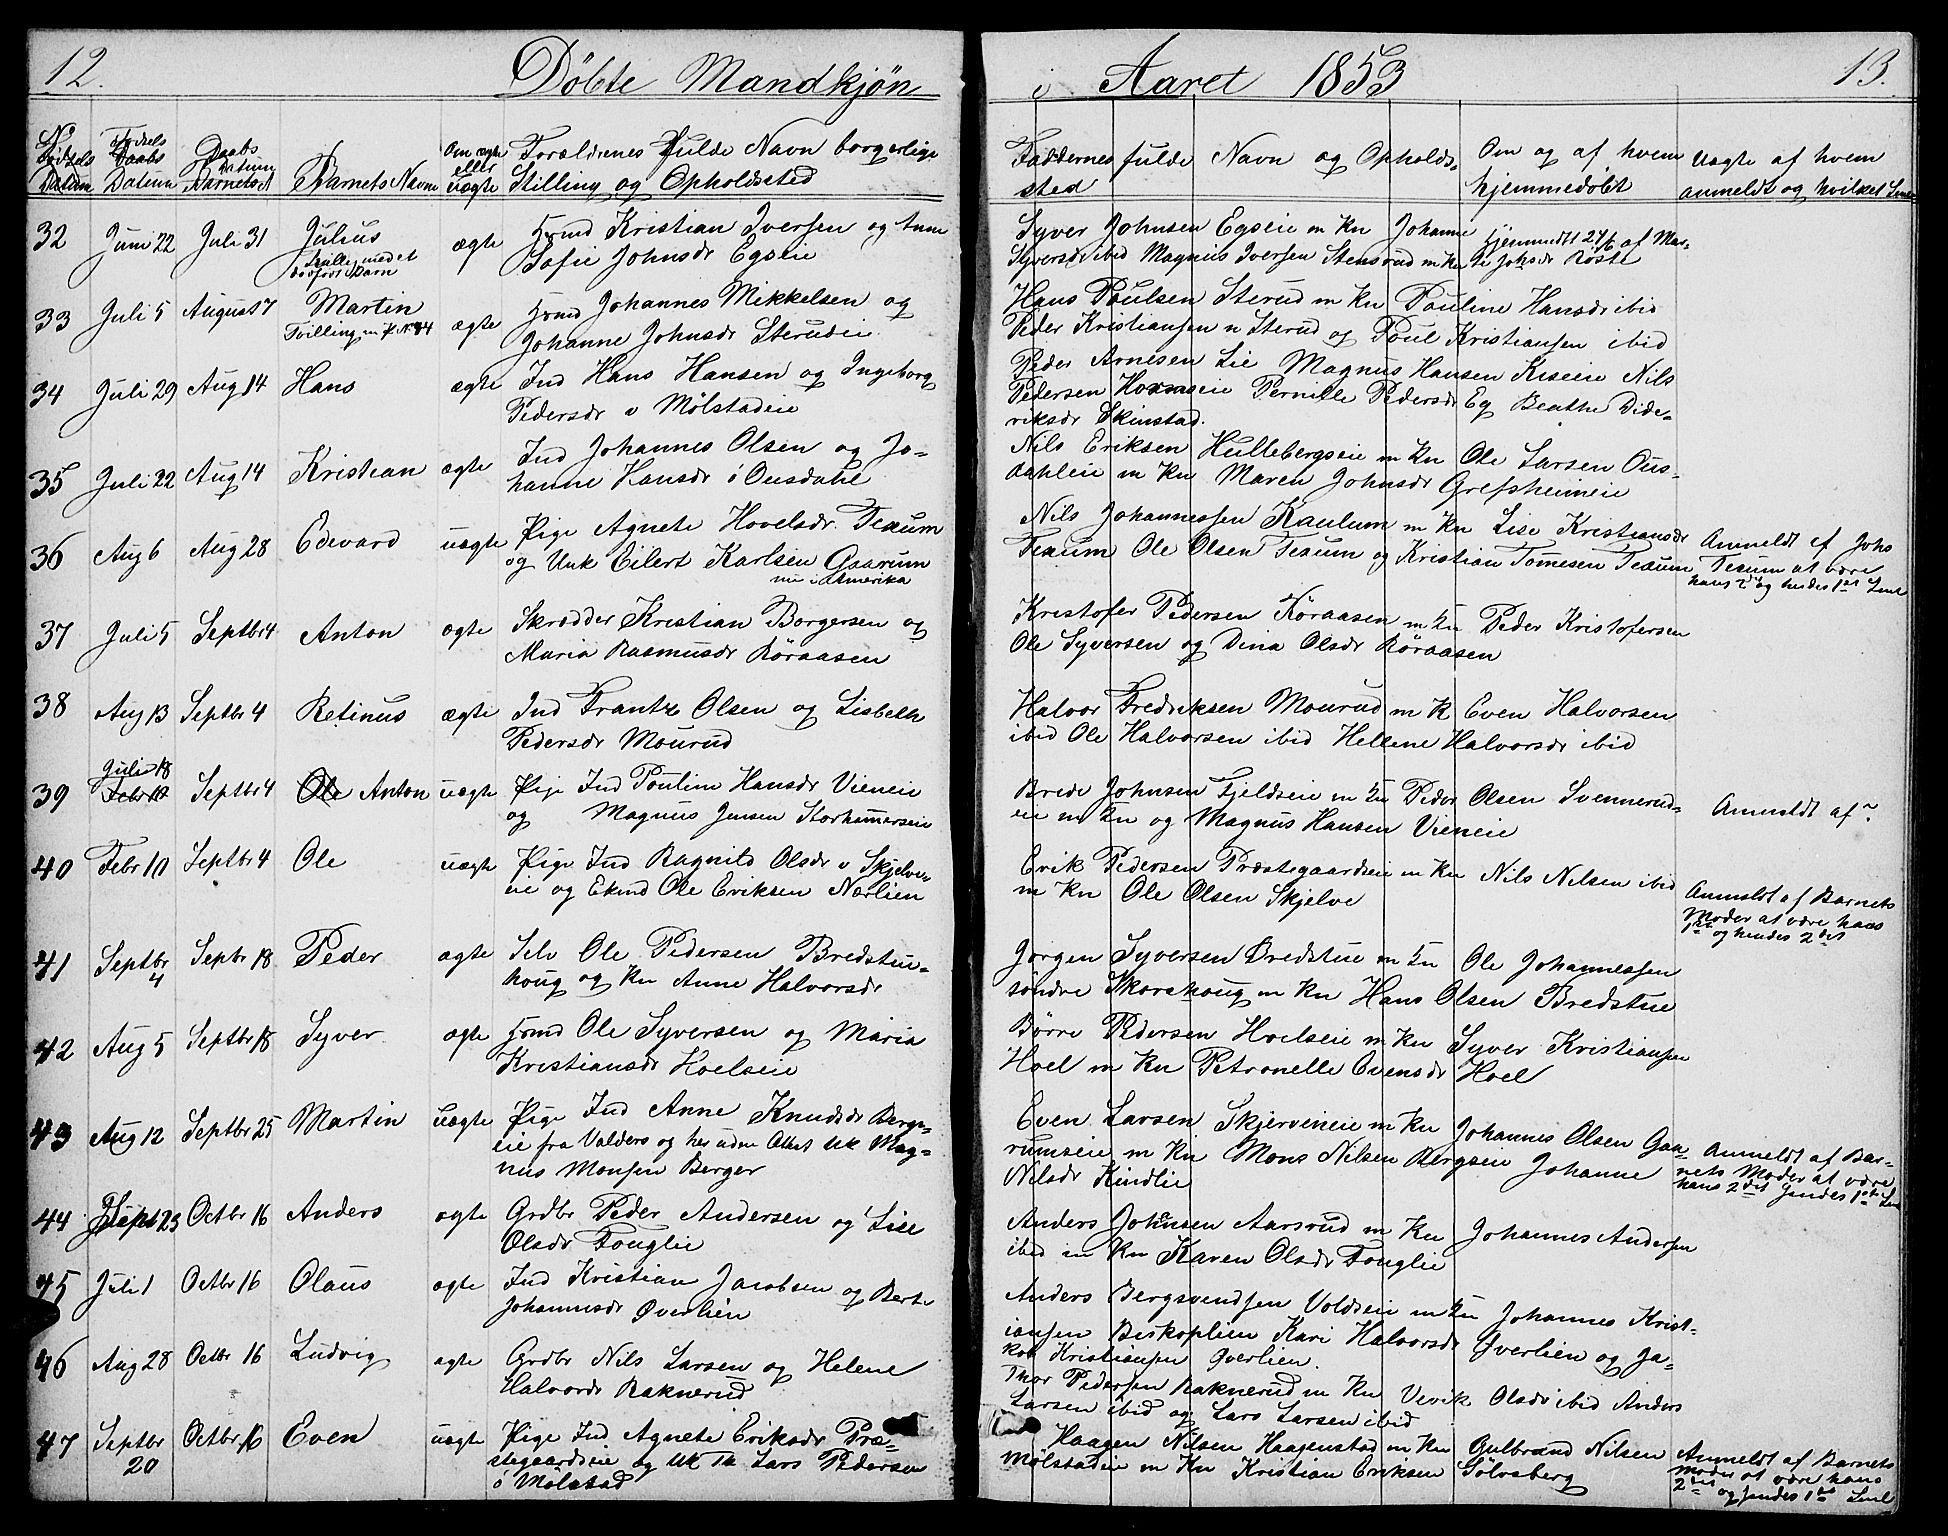 12.
Döbte Mandkjøn
No Födsels Datum
Födsels Daabs Datum
Daabs Datum Barnets N
Barnets Navn
Om ægte eller uægte
Forældrenes Fulde Navn borgerlige
Stilling og Opholdssted
32 Juni 22 Juli 31 Julius ægte Hmd Kristian Iversen og Anne
Tvilling med et dödfödt Barn
Sofie Johnsdr Egseie
33 Juli 5 August 7 Martin ægte Hmd Johannes Mikkelsen og
Tvilling m P. No 34
Johanne Johnsdr Sterudeie
34 Juli 29 Aug 14 Hans ægte Ind Hans Hansen og Ingeborg
Pedersdr v Mölstadeie
35 Juli 22 Aug 14 Kristian ægte Ind Johannes Olsen og Jo-
hanne Hansdr i Ousdahl
36 Aug 6 Aug 28 Edevard uægte Pige Agnete Hovelsdr Texum
og Unk Eilert Karlsen Gaarum
nu i Amerika
37 Juli 5 Septbr 4 Anton ægte Skrædder Kristian Borgersen og
Maria Rasmusdr Röraasen
38 Aug 13 Septbr 4 Retinus ægte Ind Frantz Olsen og Lisbeth
Pedersdr Mourud
Juli 18
39 Febr 10 Septbr 4 Ole Anton uægte Pige Ind Pouline Hansdr Vieneie
og Magnus Jensen Storhamerseie
40 Febr 10 Septbr 4 Ole uægte Pige Ind Ragnild Olsdr v Skjelve-
eie og Ekmd Ole Eriksen Nærlien
41 Septbr 4 Septbr 18 Peder ægte Selv Ole Pedersen Bredstue-
houg og Kn Anne Halvorsdr
42 Aug 5 Septbr 18 Syver ægte Hmd Ole Syversen og Maria
Kristiansdr Hoelseie
43 Aug 12 Septbr 25 Martin Uægte Pige Ind Anne Knudsdr Bergs-
eie fra Valders og her uden Attest Uk Mag-
nus Monsen Berger
44 Sept 23 Octbr 16 Anders ægte Grdbr Peder Andersen og Lise
Olsdr Fouglie
45 Juli 1 Octbr 16 Olaus ægte Ind Kristian Jacobsen og Berte
Johannesdr Överlien
46 Aug 28 Octbr 16 Ludvig ægte Grdbr Nils Larsen og Helene
Halvorsdr Baknerud
47 Septbr 20 Octbr 16 Even uægte Pige Ind Agnete Eriksdr Præ-
stegaardseie og Uk Th Lars Pedersen
o Mölstad
i Aaret 1853
13.
Faddernes fulde Navn og Opholds-
sted
Om og af hvem
hjemmedöbt
Uægte af hvem
anmeldt og hvilket Leie
Syver Johnsen Egseie m Kn Johanne
Syversdr ibid Magnus Iversen Stensrud m Kn
Hjemmedt 24/6 af Mar-
te Johsdr Röste
Hans Poulsen Sterud m Kn Pouline Hansdr ibid
Peder Kristiansen n Sterud og Poul Kristiansen ibid
Peder Arnesen Lie Magnus Hansen Kiseie Nils
Pedersen Hoxmeie Pernille Pedersdr Eg Beathe Dide-
riksdr Skinstad.
Nils Eriksen Hullebergseie m Kn Ole Larsen Ous-
dahleie m Kn Maren Johnsdr Grefsheimeie
Nils Johannessen Kaulum m Kn Lise Kristiansdr
Texum Ole Olsen Texum og Kristian Tomesen Texum
Anmeldt af Johs
Texum at være
hans 2det og hendes 1ste Leie
Kristofer Pedersen Röraasen m Kn Peder Kristofersen
Ole Syversen og Dina Olsdr Röraasen
Halvor Fredriksen Mourud m K Even Halvorsen
ibid Ole Halvorsen ibid Hellene Halvorsdr ibid
Brede Johnsen Fjeldseie m Kn Peder Olsen Svennerud-
eie m Kn og Magnus Hansen Vieneie
Anmeldt af ?
Erik Pedersen Præstegaardseie m Kn Nils Nilsen ibid
m Kn Ole Olsen Skjelve
Anmeldt af Barnets
Moder at være hans
1ste og hendes 2det
Jörgen Syversen Bredstue m Kn Ole Johannessen
söndre Skarshoug m Kn Hans Olsen Bredstue
Börre Pedersen Hoelseie m Kn Syver Kristiansen
Hoel m Kn Petronelle Evensdr Hoel
Even Larsen Skjerveneie m Kn Johannes Olsen Gaa-
rumseie m Kn Mons Nilsen Bergseie Johanne
Nilsdr Kindlie
Anmeldt af Bar-
nets Moder at være
hans 2det hendes 1ste Leie
Anders Johnsen Aarsrud m Kn Johannes Andersen
ibid m Kn Karen Olsdr Fouglie
Anders Bergsvendsen Voldseie m Kn Johannes Krist-
iansen Biskoplien Kari Halvorsdr Överlien og Ja-
kob Kristiansen Överlien.
Thor Pedersen Baknerud m Kn Verik Olsdr ibid Anders
Larsen ibid og Lars Larsen ibid
Haagen Nilsen Haagenstad m Kn Gulbrand Nilsen
Mölstadeie m Kn Kristian Eriksen Sölvsberg
Anmeldt af Barnets
Moder at være hans
2det og hendes 1ste Leie